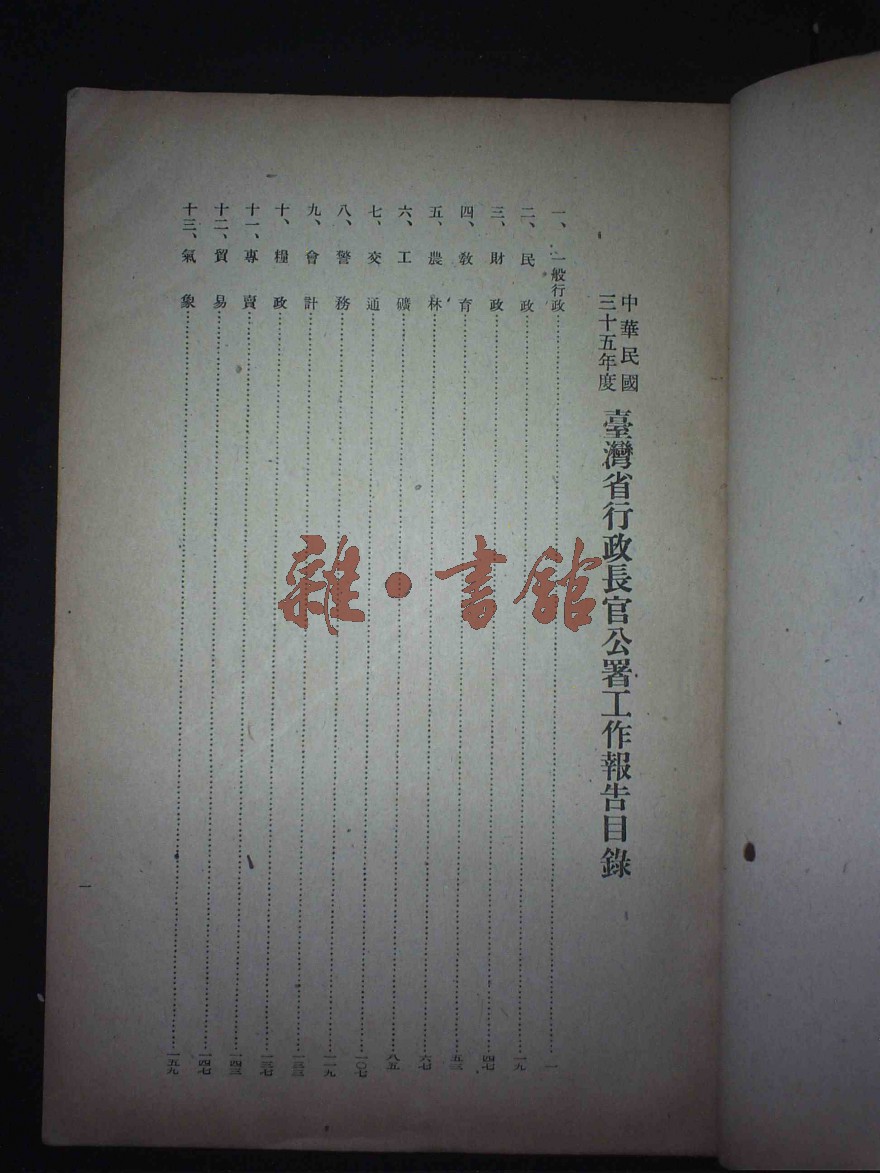 中華民國
三十五年度
臺灣省行政長官公署工作報告目錄
一、一般行政……一
二、民政……一九
三、財政……四七
四、教育……五三
五、農林……六七
六、工礦……八五
七、交通……一〇七
八、警務……一一九
九、會計……一三三
十、糧政……一三七
十一、專賣……一四三
十二、貿易……一四七
十三、氣象……一五九
一
雜·書館